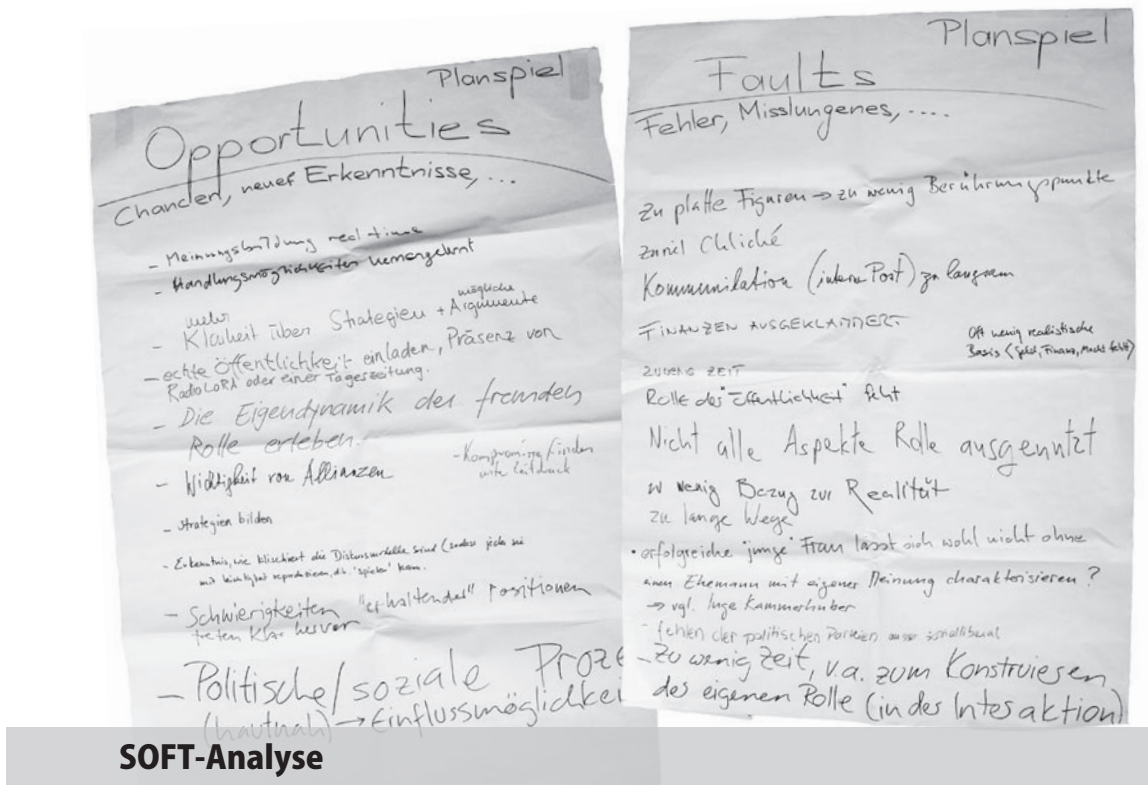 Planspiel
Opportunities
Chancen, neue Erkenntnisse, ...
- Meinungsbildung real-time
- Handlungsmöglichkeiten
mehr mögliche
- Klarheit über Strategien + Argumente
- echte Öffentlichkeit einladen, Präsenz von
Radio LoRA oder einer Tageszeitung.
- Die Eigendynamik der fremden
Rolle erleben.
- Wichtigkeit von Allianzen
- Kompromisse finden
unter Zeitdruck
- Strategien bilden
- Erkenntnis, wie klischiert die Diskursmodelle sind (sodass jede/r sie
mit Leichtigkeit reproduzieren, d.h. "spielen" kann.
- Schwierigkeiten "erhaltender" Positionen
treten klar hervor
- Politische/soziale Proze
(hautnah) → Einflussmöglichkei
Planspiel
Faults
Fehler, Misslungenes, ....
Zu platte Figuren → zu wenig Berührungspunkte
zuviel Chliché
Kommunikation (interne Post) zu langsam
FINANZEN AUSGEKLAMMERT
Oft wenig realistische
Basis (Geld, Finanz, Macht fehlt)
ZUWENIG ZEIT
Rolle der "Öffentlichkeit" fehlt
Nicht alle Aspekte Rolle ausgenutzt
zu wenig Bezug zur Realität
zu lange Wege
• erfolgreiche "junge" Frau lässt sich wohl nicht ohne
einen Ehemann mit eigener Meinung charakterisieren?
→ vgl. Inge Kammerhuber
- fehlen der politischen Parteien ausser
- Zu wenig Zeit, v.a. zum Konstruieren
der eigenen Rolle (in der Interaktion)
SOFT-Analyse